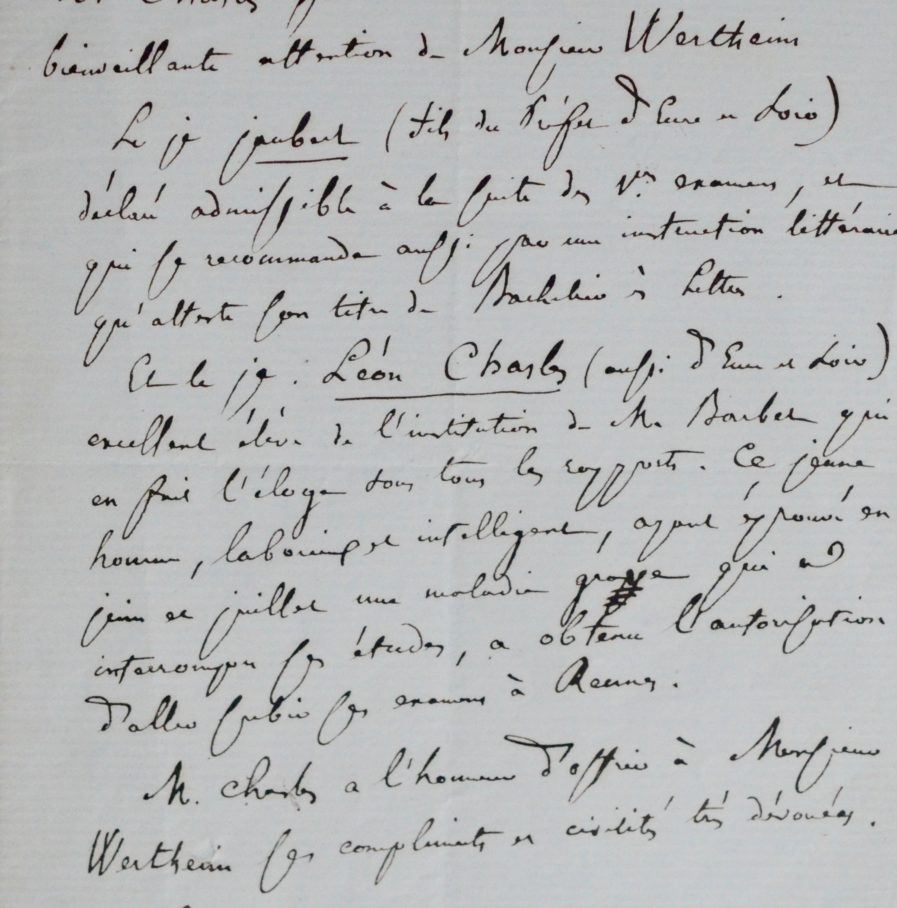 Charles
bienveillante attention de Monsieur Wertheim
Le je Jaubert (fils du Préfet d'Eure et Loir)
déclaré admissible à la suite des 1ers examens, et
qui se recommande aussi par une instruction littéraire
qu'atteste son titre de Bachelier ès Lettres.
Et le je. Léon Chasles (aussi d'Eure et Loir)
excellent élève de l'institution de M. Barbet qui
en fait l'éloge sous tous les rapports. Ce jeune
homme, laborieux et intelligent, ayant éprouvé en
juin et juillet une maladie grave qui a
interrompu ses études, a obtenu l'autorisation
d'aller subir ses examens à Rennes.
M. Chasles a l'honneur d'offrir à Monsieur
Wertheim ses compliments et civilités très dévouées.